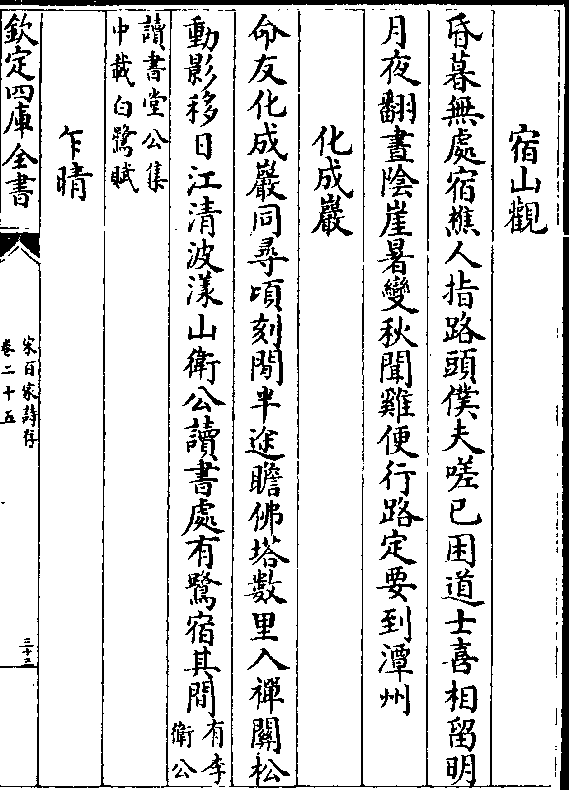 宿山觀
昏暮無處宿樵人指路頭僕夫嗟已困道士喜相留明
月夜翻晝陰崖暑變秋聞雞便行路定要到潭州
化成巖
命友化成巖同尋頃刻閒半途瞻佛塔數里入禪關松
動影移日江清波漾山衛公讀書處有鷺宿其間有李
衛公
讀書堂公集
中載白鷺賦
乍晴
欽定四庫全書
宋百家詩存
卷二十五
三十三